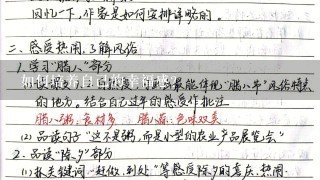 回忆一下，作家是如何安排详略的。
二、感受热闹，了解风俗
1. 学习“腊八”部分
如何培养自己的幸福感
最能体现“腊八节”风俗特点
的地方。结合自己过年的感受作批注
腊八粥：食材多 腊八蒜：色味双美
(2) 品读句子“这不是粥，而是小型的农业产品展览会”
2. 品读“除夕”部分
(1) 找关键词：赶做、到处“等感受除夕的喜庆、热闹